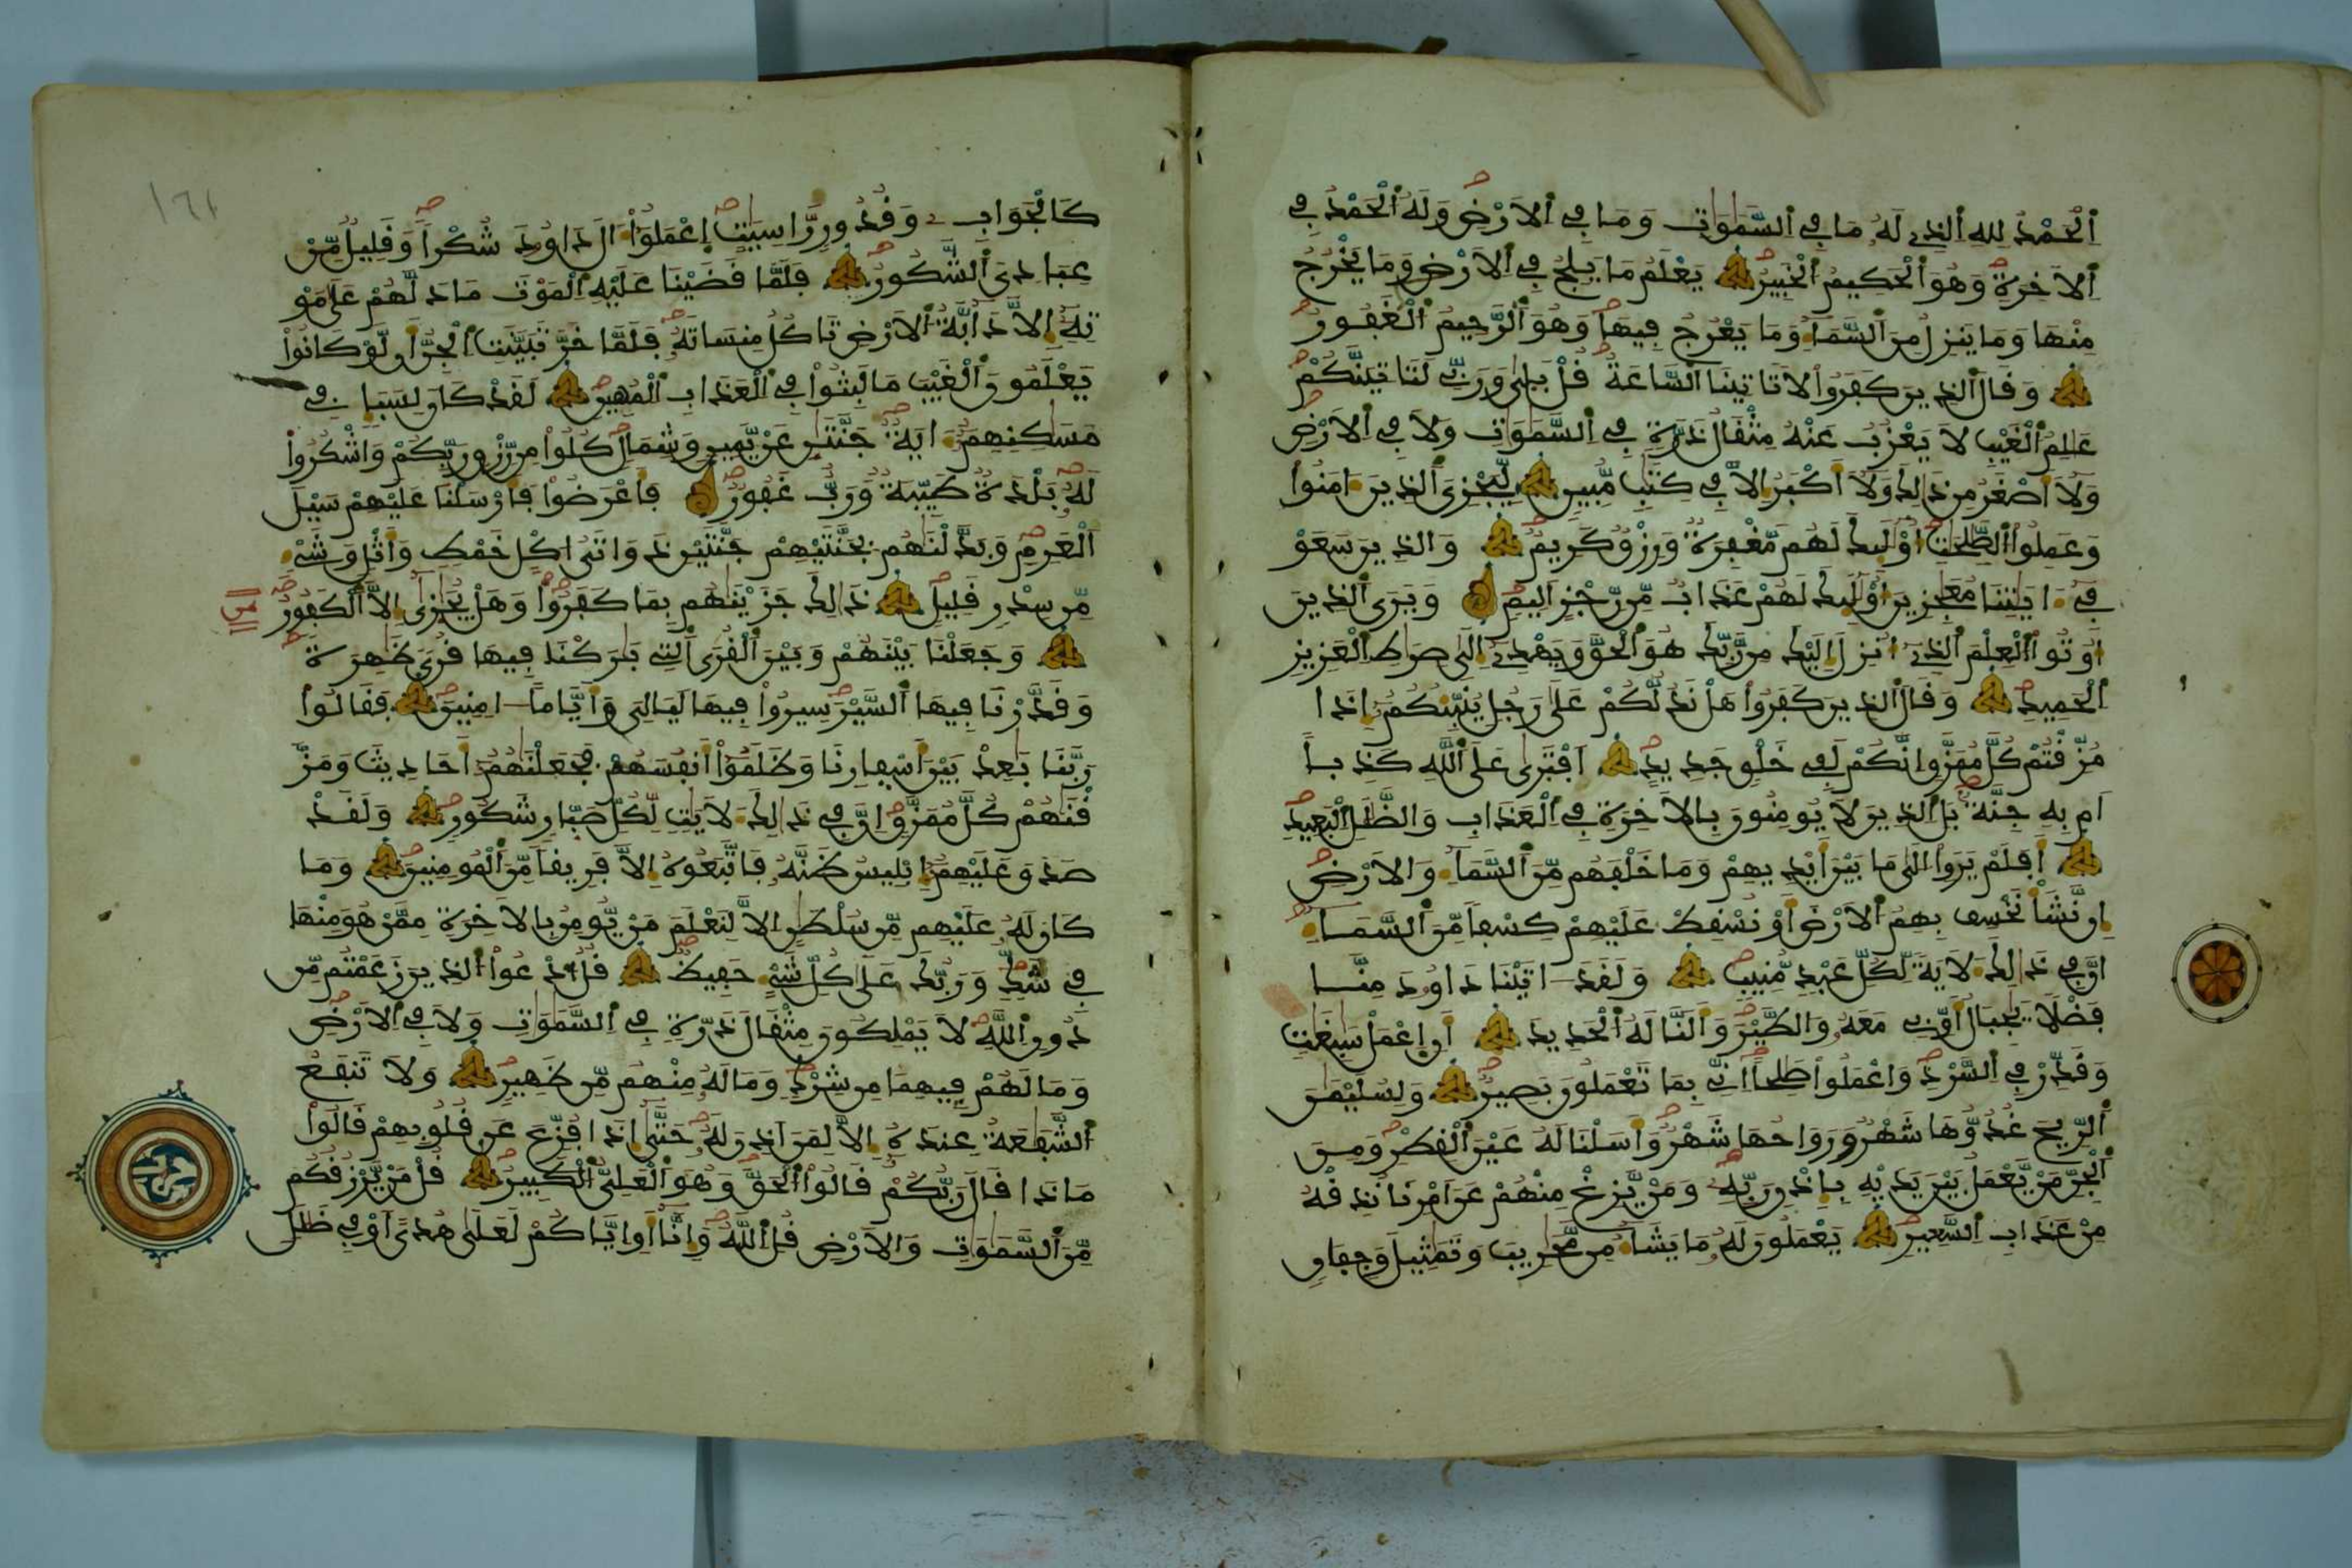 اَ۬لْحَمْدُ لِلهِ اِ۬لذِے لَهُۥ مَا فِے اِ۬لسَّمَٰوَٰتِ وَمَا فِے اِ۬لَارْضِ وَلَهُ اُ۬لْحَمْدُ فِے
اِ۬لَاخِرَةِ وَهُوَ اَ۬لْحَكِيمُ اُ۬لْخَبِيرُ يَعْلَمُ مَا يَلِجُ فِے اِ۬لَارْضِ وَمَا يَخْرُجُ
مِنْهَا وَمَا يَنزِلُ مِنَ اَ۬لسَّمَآءِ وَمَا يَعْرُجُ فِيهَا وَهُوَ اَ۬لرَّحِيمُ اُ۬لْغَفُورُ
وَقَالَ اَ۬لذِينَ كَفَرُواْ لَا تَاتِينَا اَ۬لسَّاعَةُ قُلْ بَلَىٰ وَرَبِّے لَتَاتِيَنَّكُمْ
عَٰلِمُ اُ۬لْغَيْبِ لَا يَعْزُبُ عَنْهُ مِثْقَالُ ذَرَّةٍ فِے اِ۬لسَّمَٰوَٰتِ وَلَا فِے اِ۬لَارْضِ
وَلَآ أَصْغَرُ مِن ذَٰلِكَ وَلَآ أَكْبَرُ إِلَّا فِے كِتَٰبٖ مُّبِينٖ لِّيَجْزِيَ اَ۬لذِينَ ءَامَنُواْ
وَعَمِلُواْ اُ۬لصَّٰلِحَٰتِ أُوْلَٰٓئِكَ لَهُم مَّغْفِرَةٞ وَرِزْقٞ كَرِيمٞ وَالذِينَ سَعَوْ
فِےٓ ءَايَٰتِنَا مُعَٰجِزِينَ أُوْلَٰٓئِكَ لَهُمْ عَذَابٞ مِّن رِّجْزٍ اَلِيمٖ وَيَرَى اَ۬لذِينَ
أُوتُواْ اُ۬لْعِلْمَ اَ۬لذِےٓ أُنزِلَ إِلَيْكَ مِن رَّبِّكَ هُوَ اَ۬لْحَقَّ وَيَهْدِےٓ إِلَىٰ صِرَٰطِ اِ۬لْعَزِيزِ
اِ۬لْحَمِيدِ وَقَالَ اَ۬لذِينَ كَفَرُواْ هَلْ نَدُلُّكُمْ عَلَىٰ رَجُلٖ يُنَبِّئُكُمُۥٓ إِذَا
مُزِّقْتُمْ كُلَّ مُمَزَّقٍ اِنَّكُمْ لَفِے خَلْقٖ جَدِيدٍ اَفْتَرَىٰ عَلَى اَ۬للَّهِ كَذِباً
اَم بِهِۦ جِنَّةُۢ بَلِ اِ۬لذِينَ لَا يُومِنُونَ بِالَاخِرَةِ فِے اِ۬لْعَذَابِ وَالضَّلَٰلِ اِ۬لْبَعِيدِ
أَفَلَمْ يَرَوِاْ اِلَىٰ مَا بَيْنَ أَيْدِيهِمْ وَمَا خَلْفَهُم مِّنَ اَ۬لسَّمَآءِ وَالَارْضِ
إِن نَّشَأْ نَخْسِفْ بِهِمُ اُ۬لَارْضَ أَوْ نُسْقِطْ عَلَيْهِمْ كِسْفاٗ مِّنَ اَ۬لسَّمَآءِ
اِنَّ فِے ذَٰلِكَ لَأٓيَةٗ لِّكُلِّ عَبْدٖ مُّنِيبٖ وَلَقَدَ ـ اتَيْنَا دَاوُۥدَ مِنَّا
فَضْلاٗ يَٰجِبَالُ أَوِّبِے مَعَهُۥ وَالطَّيْرَ وَأَلَنَّا لَهُ اُ۬لْحَدِيدَ أَنِ اِ۪عْمَلْ سَٰبِغَٰتٖ
وَقَدِّرْ فِے اِ۬لسَّرْدِ وَاعْمَلُواْ صَٰلِحاً اِنِّے بِمَا تَعْمَلُونَ بَصِيرٞ وَلِسُلَيْمَٰنَ
اَ۬لرِّيحَ غُدُوُّهَا شَهْرٞ وَرَوَاحُهَا شَهْرٞ وَأَسَلْنَا لَهُۥ عَيْنَ اَ۬لْقِطْرِ وَمِنَ
اَ۬لْجِنِّ مَنْ يَّعْمَلُ بَيْنَ يَدَيْهِ بِإِذْنِ رَبِّهِۦ وَمَنْ يَّزِغْ مِنْهُمْ عَنَ اَمْرِنَا نُذِقْهُ
مِنْ عَذَابِ اِ۬لسَّعِيرِ يَعْمَلُونَ لَهُۥ مَا يَشَآءُ مِن مَّحَٰرِيبَ وَتَمَٰثِيلَ وَجِفَانٖ
كَالْجَوَابِ وَقُدُورٖ رَّاسِيَٰتٍ اِ۪عْمَلُوٓاْ ءَالَ دَاوُۥدَ شُكْراٗ وَقَلِيلٞ مِّنْ
عِبَادِيَ اَ۬لشَّكُورُ فَلَمَّا قَضَيْنَا عَلَيْهِ اِ۬لْمَوْتَ مَا دَلَّهُمْ عَلَىٰ مَوْ
تِهِۦٓ إِلَّا دَآبَّةُ اُ۬لَارْضِ تَاكُلُ مِنسَاتَهُۥ فَلَمَّا خَرَّ تَبَيَّنَتِ اِ۬لْجِنُّ أَن لَّوْ كَانُواْ
يَعْلَمُونَ اَ۬لْغَيْبَ مَا لَبِثُواْ فِے اِ۬لْعَذَابِ اِ۬لْمُهِينِ لَقَدْ كَانَ لِسَبَإٖ فِے
مَسَٰكِنِهِمُۥٓ ءَايَةٞ جَنَّتَٰنِ عَنْ يَّمِينٖ وَشِمَالٖ كُلُواْ مِن رِّزْقِ رَبِّكُمْ وَاشْكُرُواْ
لَهُۥ بَلْدَةٞ طَيِّبَةٞ وَرَبٌّ غَفُورٞ فَأَعْرَضُواْ فَأَرْسَلْنَا عَلَيْهِمْ سَيْلَ
اَ۬لْعَرِمِ وَبَدَّلْنَٰهُم بِجَنَّتَيْهِمْ جَنَّتَيْنِ ذَوَاتَىُ اكْلٍ خَمْطٖ وَأَثْلٖ وَشَےْءٖ
مِّن سِدْرٖ قَلِيلٖ ذَٰلِكَ جَزَيْنَٰهُم بِمَا كَفَرُواْ وَهَلْ يُجَٰزَىٰٓ إِلَّا اَ۬لْكَفُورُ
وَجَعَلْنَا بَيْنَهُمْ وَبَيْنَ اَ۬لْقُرَى اَ۬لتِے بَٰرَكْنَا فِيهَا قُرىٗ ظَٰهِرَةٗ
وَقَدَّرْنَا فِيهَا اَ۬لسَّيْرَ سِيرُواْ فِيهَا لَيَالِيَ وَأَيَّاماً ـ امِنِينَ فَقَالُواْ
رَبَّنَا بَٰعِدْ بَيْنَ أَسْفَارِنَا وَظَلَمُوٓاْ أَنفُسَهُمْ فَجَعَلْنَٰهُمُۥٓ أَحَادِيثَ وَمَزَّ
قْنَٰهُمْ كُلَّ مُمَزَّقٍ اِنَّ فِے ذَٰلِكَ لَأٓيَٰتٖ لِّكُلِّ صَبّارٖ شَكُورٖ وَلَقَدْ
صَدَقَ عَلَيْهِمُۥٓ إِبْلِيسُ ظَنَّهُۥ فَاتَّبَعُوهُ إِلَّا فَرِيقاٗ مِّنَ اَ۬لْمُومِنِينَ وَمَا
كَانَ لَهُۥ عَلَيْهِم مِّن سُلْطَٰنٍ اِلَّا لِنَعْلَمَ مَنْ يُّومِنُ بِالَاخِرَةِ مِمَّنْ هُوَ مِنْهَا
فِے شَكّٖ وَرَبُّكَ عَلَىٰ كُلِّ شَےْءٍ حَفِيظٞ قُلُ اُ۟دْعُواْ اُ۬لذِينَ زَعَمْتُم مِّن
دُونِ اِ۬للَّهِ لَا يَمْلِكُونَ مِثْقَالَ ذَرَّةٖ فِے اِ۬لسَّمَٰوَٰتِ وَلَا فِے اِ۬لَارْضِ
وَمَا لَهُمْ فِيهِمَا مِن شِرْكٖ وَمَا لَهُۥ مِنْهُم مِّن ظَهِيرٖ وَلَا تَنفَعُ
اُ۬لشَّفَٰعَةُ عِندَهُۥٓ إِلَّا لِمَنَ اَذِنَ لَهُۥ حَتَّىٰٓ إِذَا فُزِّعَ عَن قُلُوبِهِمْ قَالُواْ
مَاذَا قَالَ رَبُّكُمْ قَالُواْ اُ۬لْحَقَّ وَهُوَ اَ۬لْعَلِيُّ اُ۬لْكَبِيرُ قُلْ مَنْ يَّرْزُقُكُم
مِّنَ اَ۬لسَّمَٰوَٰتِ وَالَارْضِ قُلِ اِ۬للَّهُ وَإِنَّآ أَوِ اِيَّاكُمْ لَعَلَىٰ هُدىً اَوْ فِے ضَلَٰلٖ